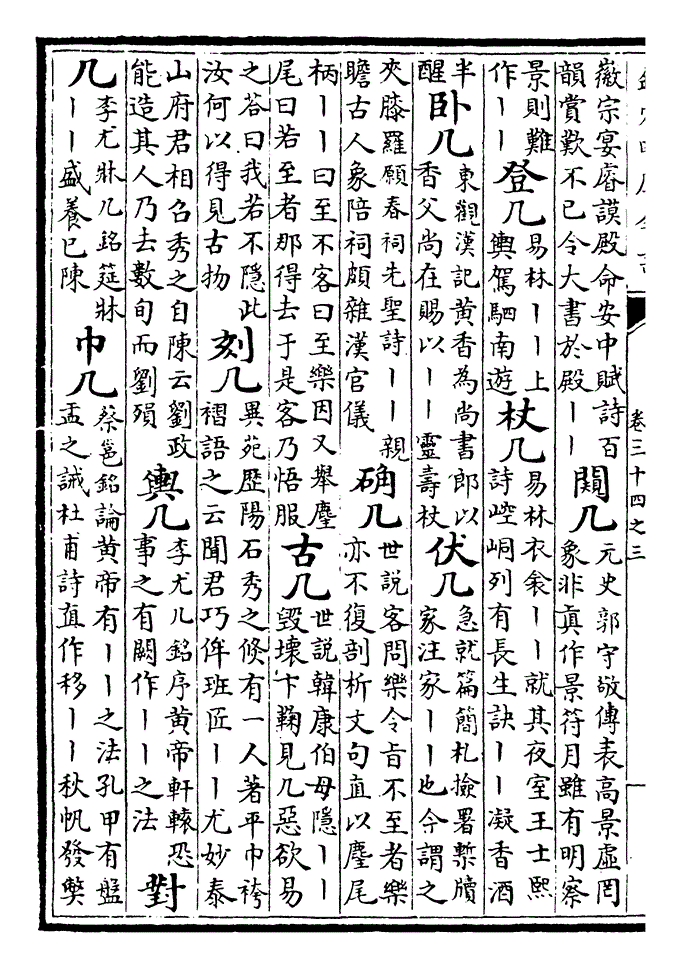 卷三十四之三
徽宗宴睿謨殿命安中賦詩百
韻賞歎不已令大書於殿丨丨
闚几
元史郭守敬傳表高景虛罔
象非真作景符月雖有明察
景則難
作丨丨
登几
易林丨丨上
輿駕駟南遊
杖几
易林衣裘丨丨就其夜室王士熙
詩崆峒列有長生訣丨丨凝香酒
半
醒
卧几
東觀漢記黄香為尚書郎以
香父尚在賜以丨丨靈壽杖
伏几
急就篇簡札撿署槧牘
家注家丨丨也今謂之
夾膝羅願春祠先聖詩丨丨親
瞻古人象陪祠頗雜漢官儀
确几
世說客問樂令旨不至者樂
亦不復剖析文句直以麈尾
柄丨丨曰至不客曰至樂因又舉麈
尾曰若至者那得去于是客乃悟服
古几
世說韓康伯母隱丨丨
毁壞卞鞠見几惡欲易
之荅曰我若不隱此
汝何以得見古物
刻几
異苑歷陽石秀之倏有一人著平巾袴
褶語之云聞君巧侔班匠丨丨尤妙泰
山府君相召秀之自陳云劉政
能造其人乃去數旬而劉殞
輿几
李尤几銘序黄帝軒轅恐
事之有闕作丨丨之法
對
几
李尤牀几銘筵牀
丨丨盛養已陳
巾几
蔡邕銘論黄帝有丨丨之法孔甲有盤
盂之誡杜甫詩直作移丨丨秋帆發弊